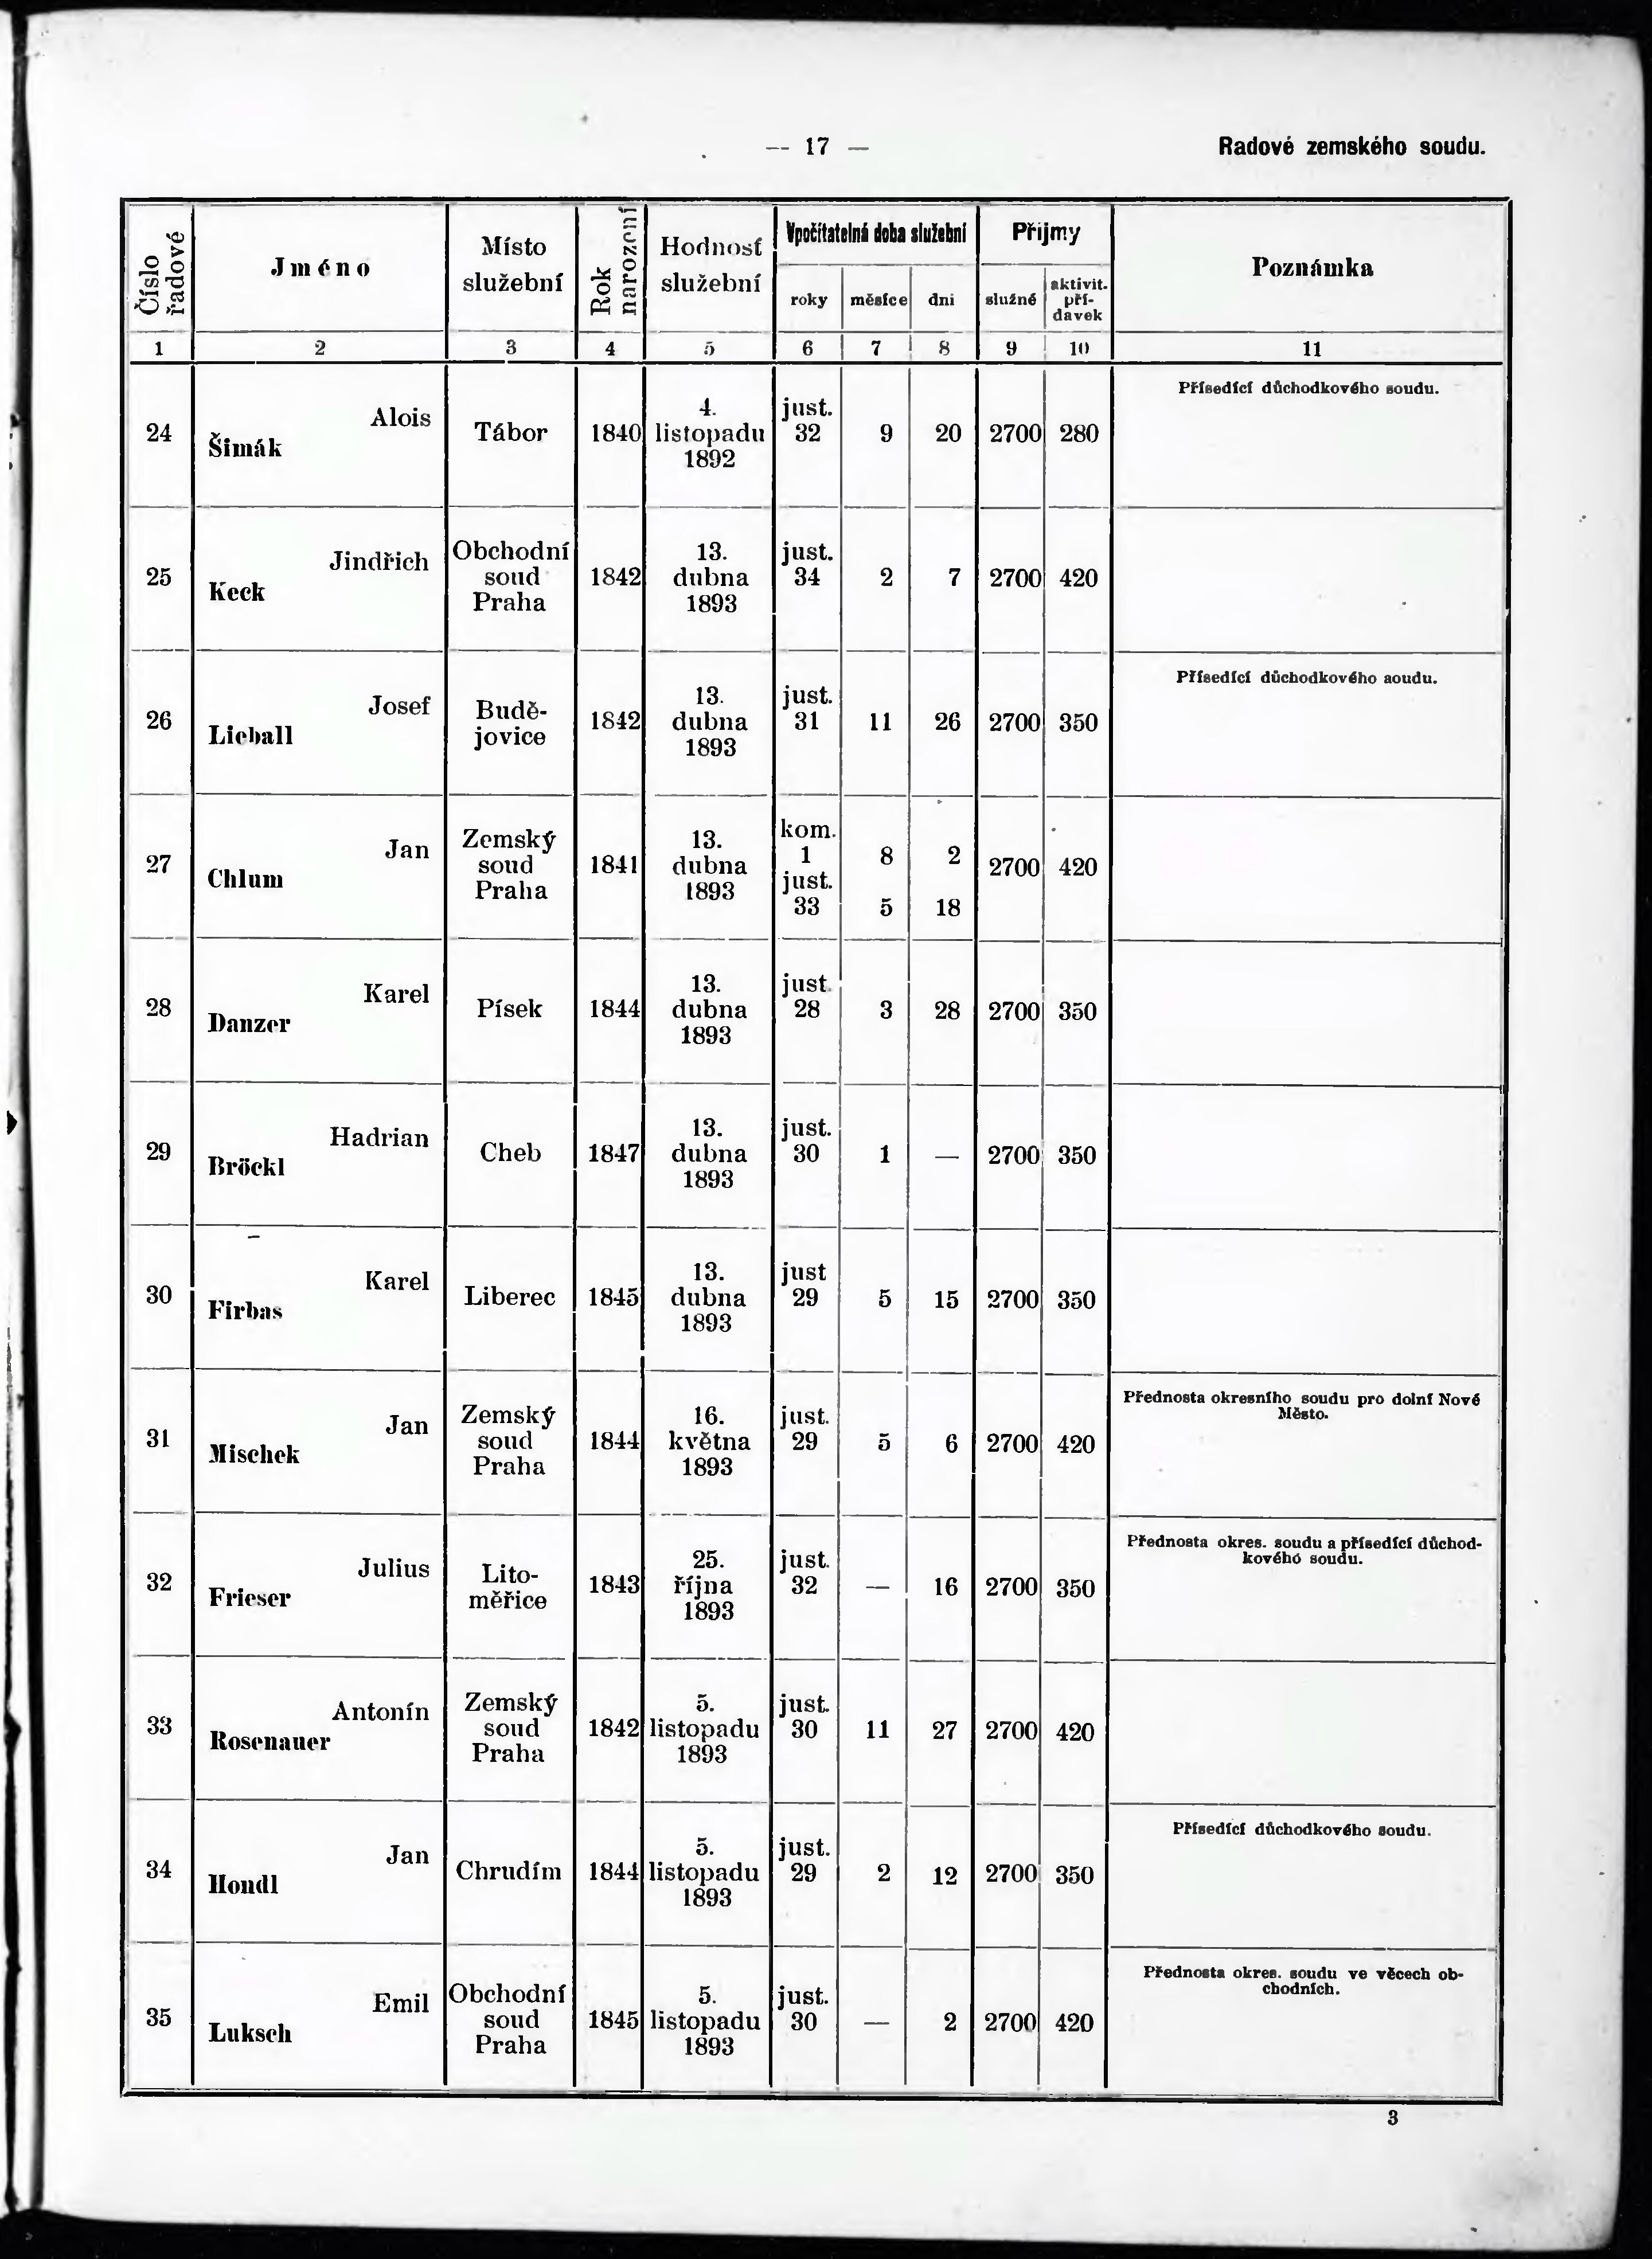 — 17 —
Radové zemského soudu.
Číslo řadové
Jméno
Místo služební
Rok narození
Hodnosť služební
Vpočítatelná doba služební
Příjmy
Poznámka
roky
měsíce
dni
služné
aktivit. pří-davek
1 2 3 4 5 6 7 8 9 10 11
Přísedící důchodkového soudu.
Alois
24 Šimák Tábor 1840 4. listopadu 1892 just. 32 9 20 2700 280
Jindřich
25 Keck Obchodní soud Praha 1842 13. dubna 1893 just. 34 2 7 2700 420
Přísedící důchodkového aoudu.
Josef
26 Lieball Budě-jovice 1842 13. dubna 1893 just. 31 11 26 2700 350
Jan
27 Chlum Zemský soud Praha 1841 13. dubna 1893 kom. 1 8 2 just. 33 5 18 2700 420
Karel
28 Danzer Písek 1844 13. dubna 1893 just. 28 3 28 2700 350
Hadrian
29 Bröckl Cheb 1847 13. dubna 1893 just. 30 1 — 2700 350
Karel
30 Firbas Liberec 1845 13. dubna 1893 just 29 5 15 2700 350
Přednosta okresního soudu pro dolní Nové
Město.
Jan
31 Mischek Zemský soud Praha 1844 16. května 1893 just. 29 5 6 2700 420
Přednosta okres. soudu a přísedící důchod-
kového soudu.
Julius
32 Frieser Lito-měřice 1843 25. října 1893 just. 32 — 16 2700 350
Antonín
33 Rosenauer Zemský soud Praha 1842 5. listopadu 1893 just. 30 11 27 2700 420
Přísedící důchodkového soudu.
Jan
34 Hondl Chrudím 1844 5. listopadu 1893 just. 29 2 12 2700 350
Přednosta okres. soudu ve věcech ob-
chodních.
Emil
35 Luksch Obchodní soud Praha 1845 5. listopadu 1893 just. 30 — 2 2700 420
3